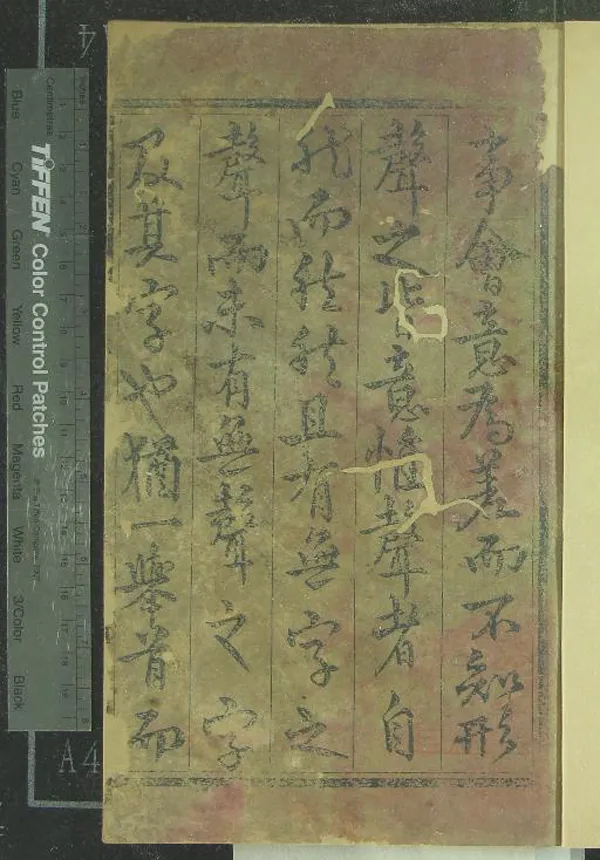 事會意為美而不知形
聲之背意惟聲者自
然而然然且有無字之
聲而未有無聲之字
及其字也猶一舉首而
TIFFEN Color Control Patches
Blue Cyan Green Yellow Red Magenta White 3/Color Black
Centimetres
Inches
A4